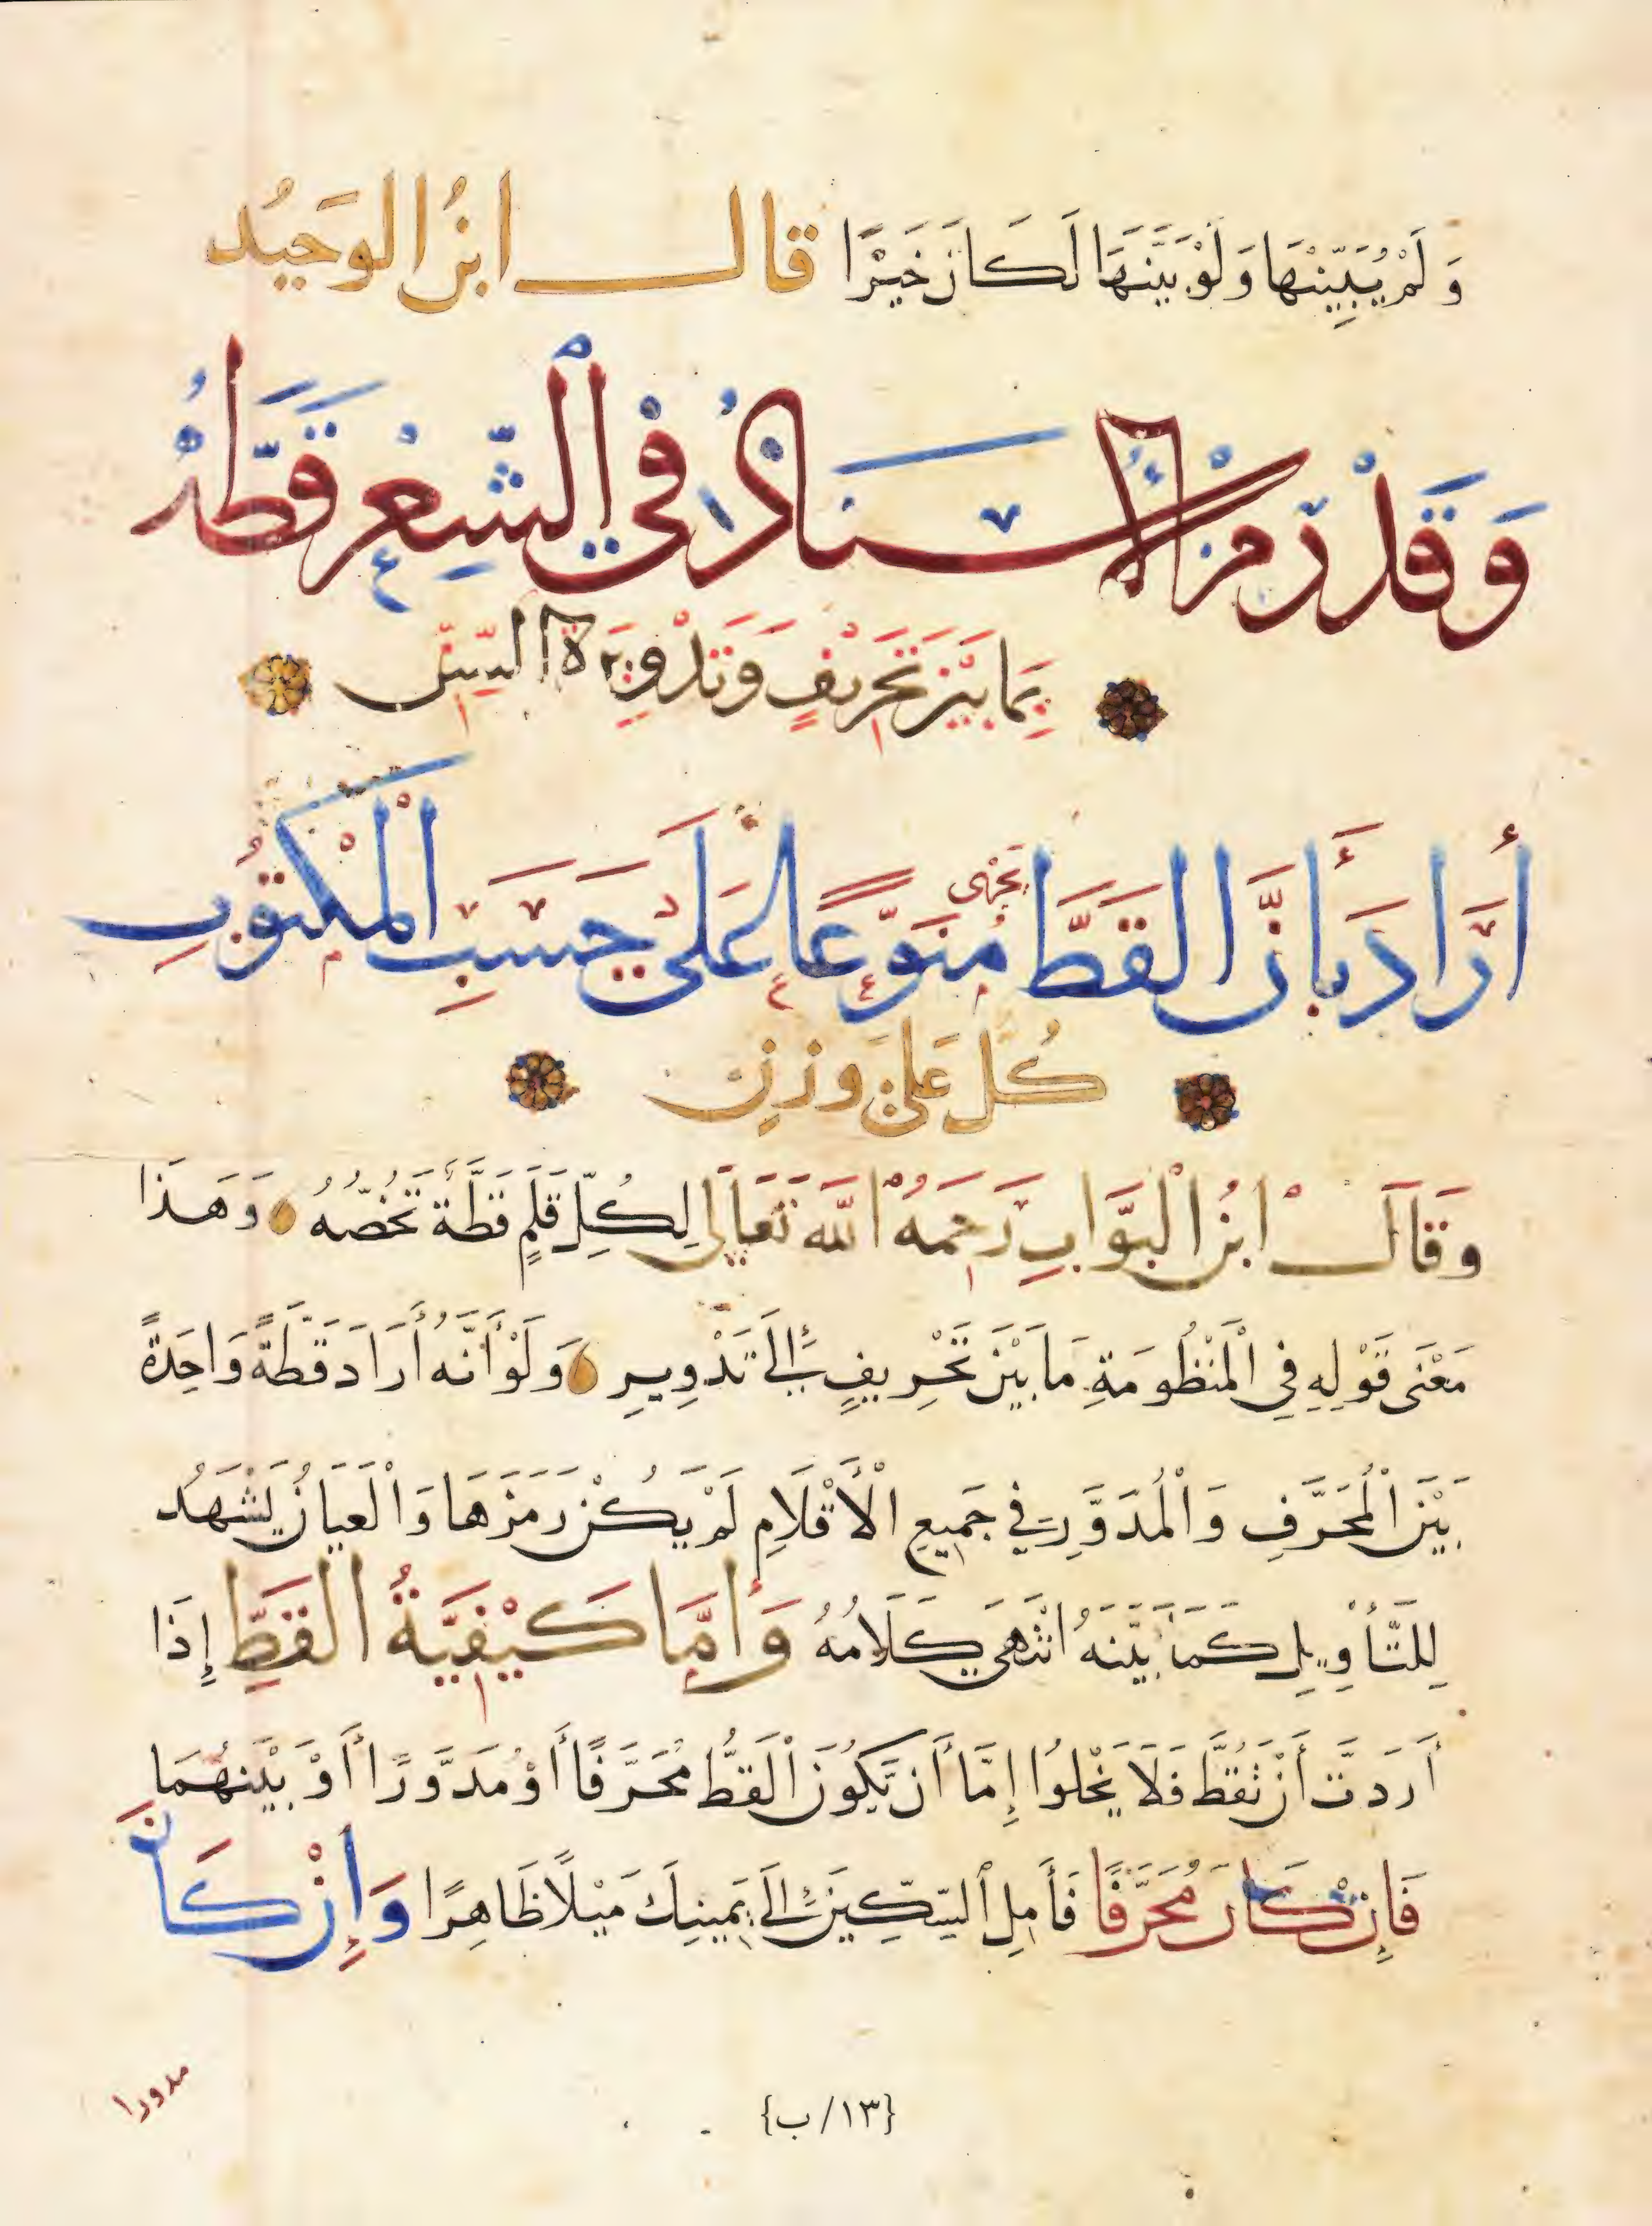 وَلَمْ يُبَيِّنْهَا وَلَوْ بَيَّنَهَا لَكَانَ خَيْرًا قال ابنُ الوَحيُد
وَقَدْ رمز الأسْتَاذُ في الشِّعْرِ قَطَّهُ
بِمَا بَيْنَ تَحْرِيفٍ وَتَدْوِيرَةِ السِّنِّ
أَرَادَ بِأَنَّ القَطَّ مُنَوَّعًا عَلَى حَسَبِ الْمَكْتُوبِ
كُلٌّ عَلَى وَزْنِ
وَقَالَ ابْنُ الْبَوَّابِ رَحِمَهُ اللَّه تَعَالَى لِكُلِّ قَلَمٍ قَطَّةٌ تَخُصُّهُ وَهَذَا
مَعْنَى قَوْلِهِ فِي الْمَنْظُومَةِ مَا بَيْنَ تَحْرِيفٍ إِلَى تَدْوِيرِ وَلَوْ أَنَّهُ أَرَادَ قَطَّةً وَاحِدَةً
بَيْنَ الْمُحَرَّفِ وَالْمُدَوَّرِ فِي جَمِيعِ الْأَقْلَامِ لَمْ يَكُنْ رَمَزَهَا وَالْعَيَانُ يَشْهَدُ
لِلتَّأْوِيلِ كَمَا بَيَّنَهُ انْتَهَى كَلَامُهُ وَأَمَّا كَيْفِيَّةُ القَطِّ إِذَا
أَرَدتَّ أَنْ تَقُطَّ فَلَا يَخْلُوا إِمَّا أَن تَكُونَ الْقَطُّ مُحَرَّفًا أَوْ مُدَوَّرًا أَوْ بَيْنَهُمَا
فَإِنْ كَانَ مُحَرَّفًا فَأَمِلِ السِّكِّينَ إِلَى يَمِينِكَ مَيْلًا ظَاهِرًا وَإِنْ كَانَ
مدورا
{١٣/ ب}